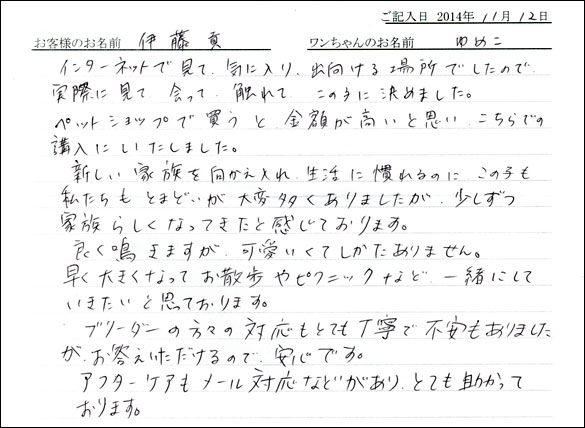 ご記入日 2014年 11月 12日
お客様のお名前 伊藤 真 ワンちゃんのお名前 ゆめこ
インターネットで見て、気に入り、出向ける場所でしたので、
実際に見て、会って、触れて、この子に決めました。
ペットショップで買うと金額が高いと思い、こちらでの
講入にいたしました。
新しい家族を向かえ入れ、生活に慣れるのにこの子も
私たちもとまどいが大変多くありましたが、少しずつ
家族らしくなってきたと感じております。
良く鳴きますが、可愛いくてしかたありません。
早く大きくなってお散歩やピクニックなど、一緒にして
いきたいと思っております。
ブリーダーの方々の対応もとても丁寧で不安もありました
が、お答えいただけるので、安心です。
アフターケアもメール対応などがあり、とても助かって
おります。